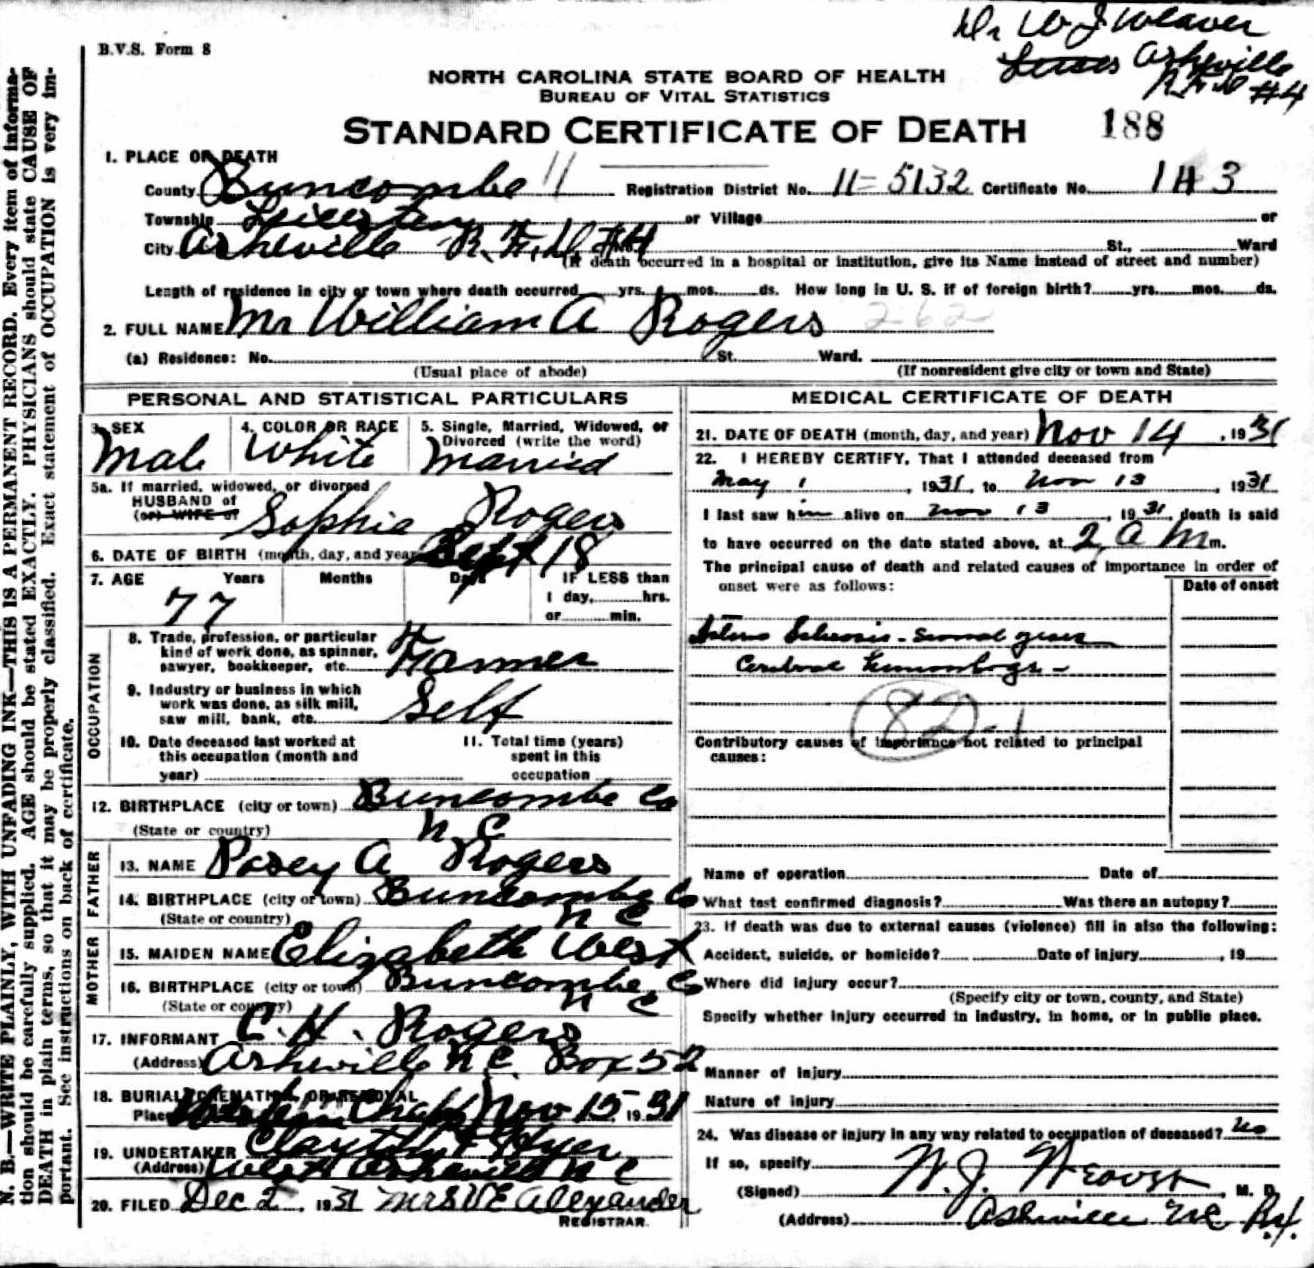 Dr W J Weaver
Asheville
R.F.D #4
B.V.S. Form 8
NORTH CAROLINA STATE BOARD OF HEALTH
BUREAU OF VITAL STATISTICS
STANDARD CERTIFICATE OF DEATH 188
1. PLACE OF DEATH
County Buncombe 11 Registration District No. 11-5132 Certificate No. 143
Township Leicester or Village or
City Asheville R.F.D. #4 St., Ward
(If death occurred in a hospital or institution, give its Name instead of street and number)
Length of residence in city or town where death occurred yrs. mos. ds. How long in U. S. if of foreign birth? yrs. mos. ds.
2. FULL NAME Mr William A Rogers 262
(a) Residence: No. St. Ward.
(Usual place of abode) (If nonresident give city or town and State)
PERSONAL AND STATISTICAL PARTICULARS
3. SEX 4. COLOR OR RACE 5. Single, Married, Widowed, or
Divorced (write the word)
Male White Married
5a. If married, widowed, or divorced
HUSBAND of
(or) WIFE of Sophia Rogers
6. DATE OF BIRTH (month, day, and year) Sept 18
7. AGE Years Months Days IF LESS than
77 1 day, hrs.
or min.
OCCUPATION
8. Trade, profession, or particular
kind of work done, as spinner,
sawyer, bookkeeper, etc. Farmer
9. Industry or business in which
work was done, as silk mill,
saw mill, bank, etc. Self
10. Date deceased last worked at 11. Total time (years)
this occupation (month and spent in this
year) occupation
12. BIRTHPLACE (city or town) Buncombe Co
(State or country) N C
FATHER
13. NAME Posey A Rogers
14. BIRTHPLACE (city or town) Buncombe Co
(State or country) N C
MOTHER
15. MAIDEN NAME Elizabeth West
16. BIRTHPLACE (city or town) Buncombe Co
(State or country) N C
17. INFORMANT C. H. Rogers
(Address) Asheville N C. Box 52
18. BURIAL, CREMATION, OR REMOVAL
Place Chapel Nov 15 1931
19. UNDERTAKER
(Address) West Asheville N C
20. FILED Dec 2, 1931 Mrs V E Alexander
REGISTRAR.
MEDICAL CERTIFICATE OF DEATH
21. DATE OF DEATH (month, day, and year) Nov 14, 1931
22. I HEREBY CERTIFY, That I attended deceased from
May 1, 1931, to Nov 13, 1931
I last saw him alive on Nov 13, 1931, death is said
to have occurred on the date stated above, at 2 a M m.
The principal cause of death and related causes of importance in order of
onset were as follows: Date of onset
Sclerosis - several years
Cerebral Hemorrhage -
82-1
Contributory causes of importance not related to principal
causes:
Name of operation Date of
What test confirmed diagnosis? Was there an autopsy?
23. If death was due to external causes (violence) fill in also the following:
Accident, suicide, or homicide? Date of injury , 19
Where did injury occur?
(Specify city or town, county, and State)
Specify whether injury occurred in industry, in home, or in public place.
Manner of injury
Nature of injury
24. Was disease or injury in any way related to occupation of deceased? No
If so, specify
(Signed) W. J. Weaver, M. D.
(Address) Asheville NC
N. B.—WRITE PLAINLY, WITH UNFADING INK—THIS IS A PERMANENT RECORD. Every item of informa-
tion should be carefully supplied. AGE should be stated EXACTLY. PHYSICIANS should state CAUSE OF
DEATH in plain terms, so that it may be properly classified. Exact statement of OCCUPATION is very im-
portant. See instructions on back of certificate.